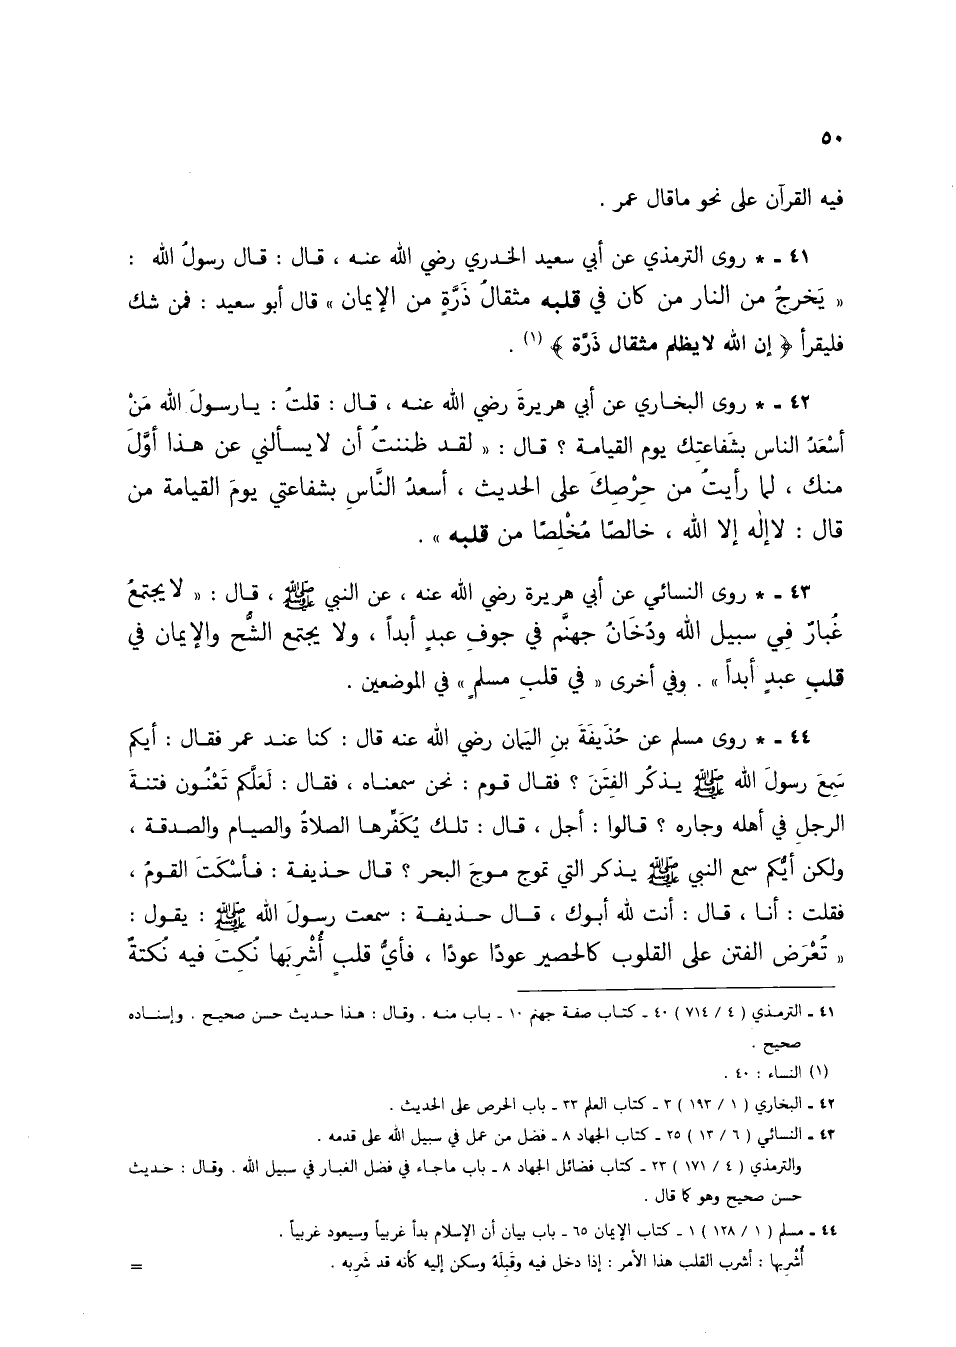 ٥٠
فيه القرآن على نحو ماقال عمر .
٤١ ـ * روى الترمذي عن أبي سعيد الخدري رضي الله عنه ، قال : قال رسولُ الله :
« يَخرجُ من النار من كان في قلبه مثقالُ ذَرَّةٍ من الإيمان » قال أبو سعيد : فمن شك
فليقرأ ﴿ إن الله لايظلم مثقال ذَرَّة ﴾ (١) .
٤٢ ـ * روى البخاري عن أبي هريرةَ رضي الله عنه ، قال : قلتُ : يارسولَ الله مَنْ
أسْعَدُ الناس بشَفاعتِك يوم القيامة ؟ قال : « لقد ظننتُ أن لايسألني عن هذا أوَّلَ
منك ، لما رأيتُ من حِرْصِكَ على الحديث ، أسعدُ النَّاسِ بشفاعتي يومَ القيامة من
قال : لاإله إلا الله ، خالصًا مُخْلِصًا من قلبه » .
٤٣ ـ * روى النسائي عن أبي هريرة رضي الله عنه ، عن النبي ﷺ ، قال : « لايجتمعُ
غُبارٌ فِي سبيل الله ودُخَانُ جهنَّم في جوفِ عبدٍ أبداً ، ولا يجتمع الشُّح والإيمان في
قلبِ عبدٍ أبداً » . وفي أخرى « في قلبِ مسلمٍ » في الموضعين .
٤٤ ـ * روى مسلم عن حُذَيفَةَ بنِ اليَمان رضي الله عنه قال : كنا عند عمر فقال : أيكم
سَمِعَ رسولَ الله ﷺ يذكُر الفِتَنَ ؟ فقال قوم : نحن سمعناه ، فقال : لَعَلَّكم تَعْنُون فتنةَ
الرجلِ في أهله وجاره ؟ قالوا : أجل ، قال : تلك يُكَفِّرها الصلاةُ والصيام والصدقة ،
ولكن أيُّكم سمع النبي ﷺ يذكر التي تموج موجَ البحر ؟ قال حذيفة : فأسْكَتَ القومُ ،
فقلت : أنا ، قال : أنت لله أبوك ، قال حذيفة : سمعت رسولَ الله ﷺ : يقول :
« تُعْرَض الفتن على القلوب كالحصير عودًا عودًا ، فأيُّ قلبٍ أُشْرِبَها نُكِتَ فيه نُكتةٌ
٤١ ـ الترمذي ( ٤ / ٧١٤ ) ٤٠ ـ كتاب صفة جهنم ١٠ ـ باب منه . وقال : هذا حديث حسن صحيح . وإسناده
صحيح .
(١) النساء : ٤٠ .
٤٢ ـ البخاري ( ١ / ١٩٣ ) ٣ ـ كتاب العلم ٣٣ ـ باب الحرص على الحديث .
٤٣ ـ النسائي ( ٦ / ١٣ ) ٢٥ ـ كتاب الجهاد ٨ ـ فضل من عمل في سبيل الله على قدمه .
والترمذي ( ٤ / ١٧١ ) ٢٣ ـ كتاب فضائل الجهاد ٨ ـ باب ماجاء في فضل الغبار في سبيل الله . وقال : حديث
حسن صحيح وهو كما قال .
٤٤ ـ مسلم ( ١ / ١٢٨ ) ١ ـ كتاب الإيمان ٦٥ ـ باب بيان أن الإسلام بدأ غريباً وسيعود غريباً .
أُشْرِبها : أشرب القلب هذا الأمر : إذا دخل فيه وقَبِلَهُ وسكن إليه كأنه قد شَرِبه . =